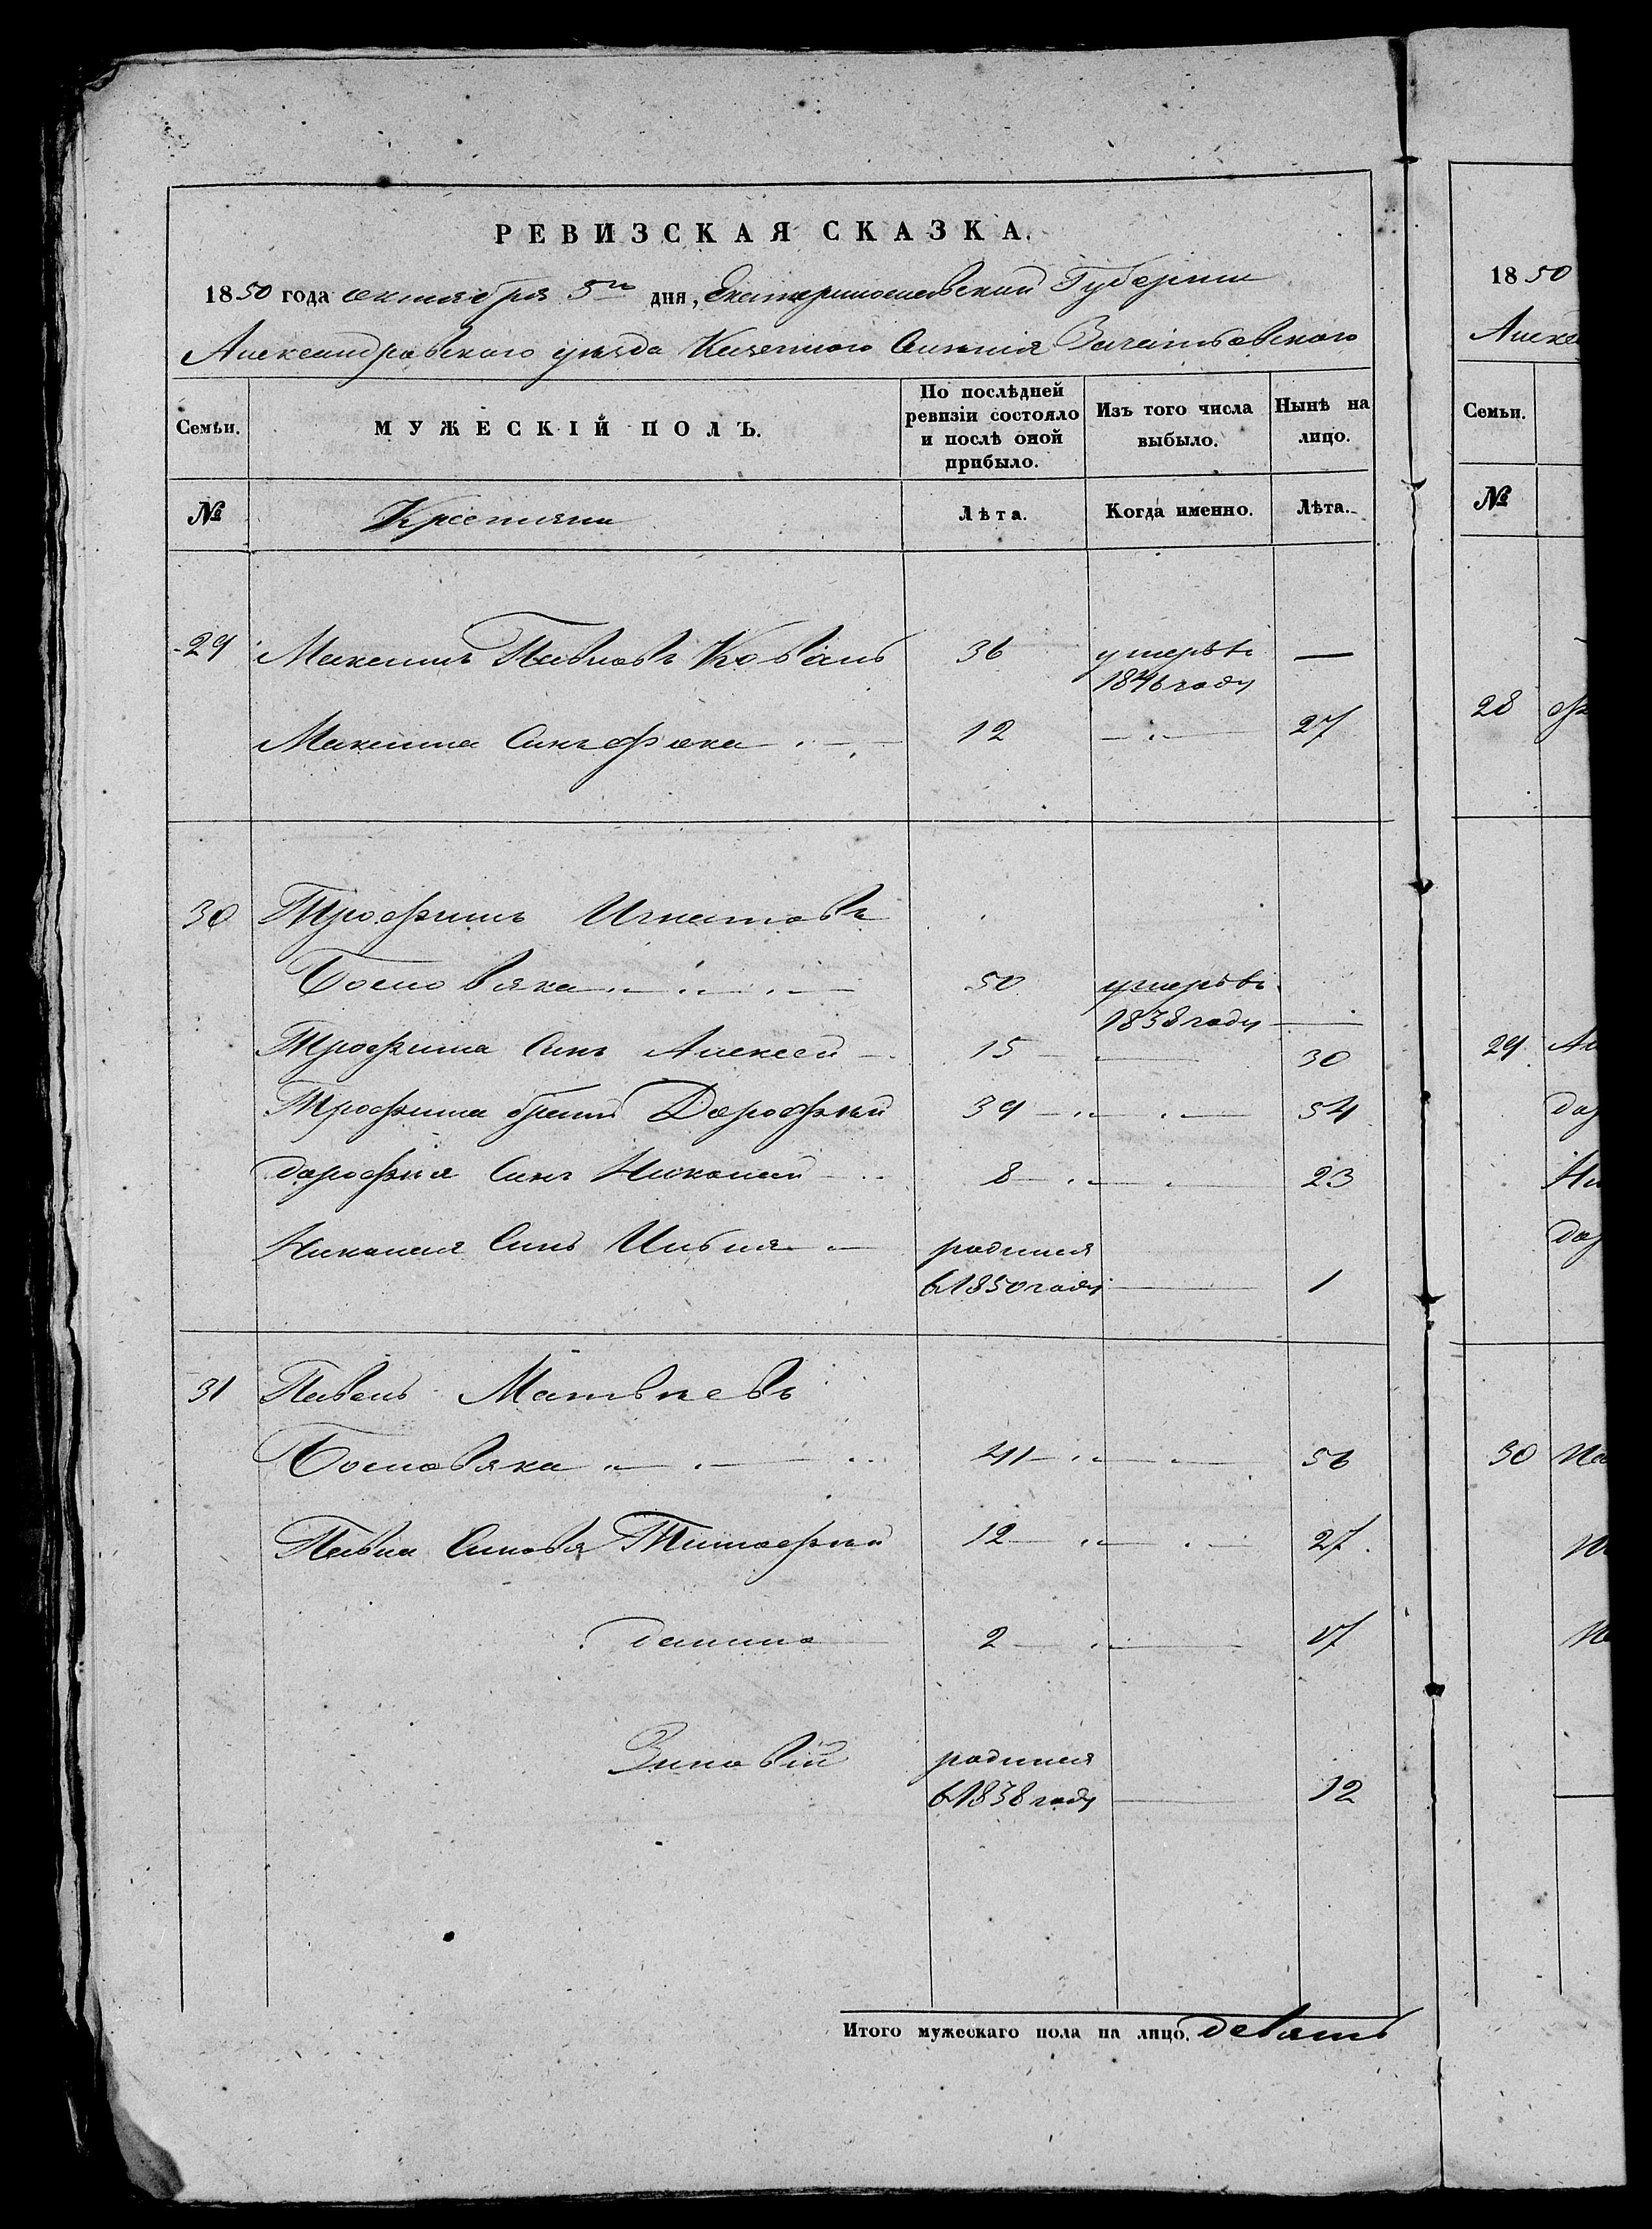 РЕВИЗСКАЯ СКАЗКА.
1850 года октября 5го дня, Екатеринославской Губернии
Александровского уезда Казенного Селения Зачатьевского
Семьи. МУЖЕСКІЙ ПОЛЪ. По послѣдней ревизіи состояло и послѣ оной прибыло. Изъ того числа выбыло. Нынѣ на лицо.
№ Крестяни Лѣта. Когда именно. Лѣта.
29 Максимъ Павловъ Коваль 36 умеръ въ 1846 году —
Максима Синъ Фока 12 27
30 Трофимъ Игнатовъ
50 умеръ въ 1838 году —
Трофима Синъ Алексей 15 30
Трофима братъ Дорофѣй 39 54
Дорофѣя Синъ Николай 8 23
Николая Синъ Илья родился в 1850 году 1
31 Павелъ Матвѣевъ
41 56
Павла Синовя Тимофѣй 12 27
Данило 2 17
Зиновій родился в 1838 году 12
Итого мужескаго пола на лицо. девять
1850
Алекс
Семьи.
№
28
29
Дор
Ни
Дор
30